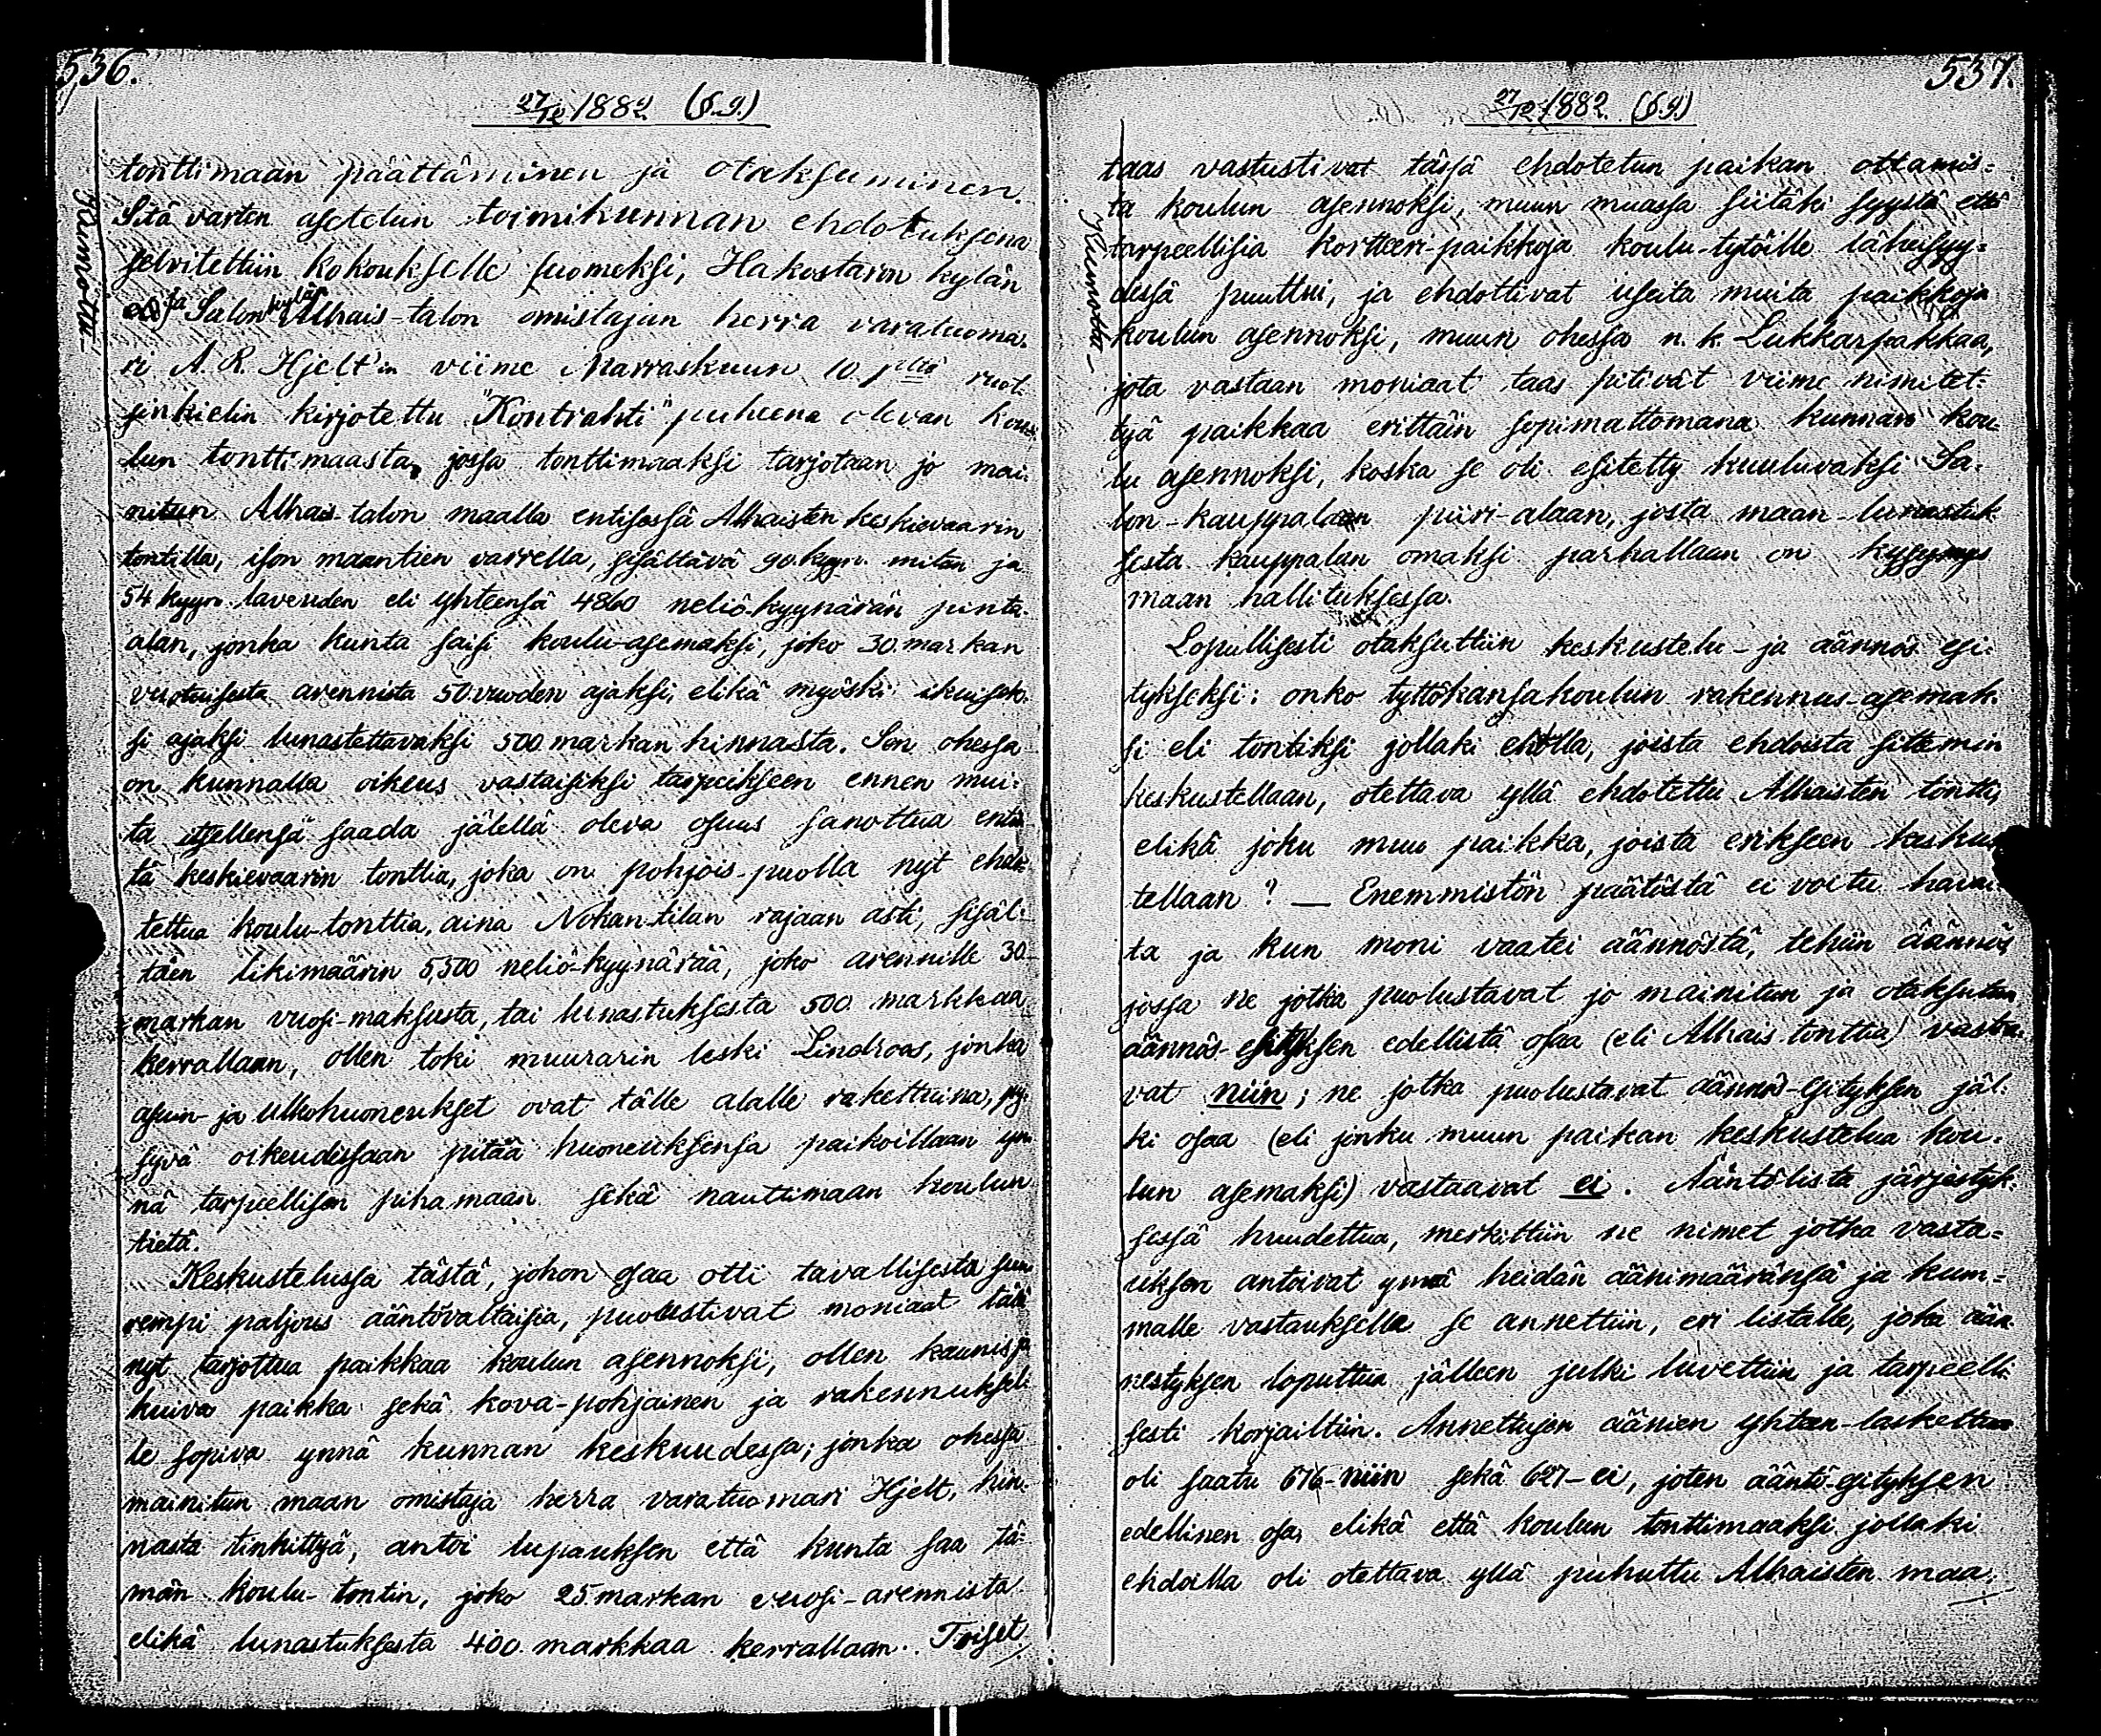 536.
27/12 1882 (§.9.)
tonttimaan päättäminen ja otaksuminen.
Sitä varten asetetun toimikunnan ehdotuksena
selvitettiin kokoukselle suomeksi, Hakostaron kylän
ja Salon kylän Alhais-talon omistajan herra varatuoma-
ri A. R. Hjelt'in viime Marraskuun 10 p:nä ruot-
sinkielin kirjotettu "Kontrahti" puheena olevan kou-
lun tonttimaasta, jossa tonttimaaksi tarjotaan jo mai-
nitun Alhais-talon maalla entisessä Alhaisten keskievaarin
tontilla, ison maantien varrella, sisältävä 90. kyyn. mitan ja
54 kyyn. laveuden eli yhteensä 4860 neliö-kyynärän pinta-
alan, jonka kunta saisi koulu-asemaksi, joko 30. markan
vuotuisesta arennista 50. vuoden ajaksi, elikä myöski ikuisek-
si ajaksi lunastettavaksi 500 markan hinnasta. Sen ohessa
on kunnalla oikeus vastaiseksi tarpeikseen ennen mui-
ta itsellensä saada jälellä oleva osuus sanottua entis-
tä keskievaarin tonttia, joka on pohjois-puolla nyt ehdo-
tettua koulu-tonttia, aina Nohan-tilan rajaan asti, sisäl-
täen likimäärin 5,300 neliö-kyynärää, joko arennille 30-
markan vuosi-maksusta, tai lunastuksesta 500 markkaa
kerrallaan, ollen toki muurarin leski Lindroos, jonka
asuin- ja ulkohuoneukset ovat tälle alalle rakettuina, py-
syvä oikeudessaan pitää huoneuksensa paikoillaan yn-
nä tarpeellisen pihamaan sekä nauttimaan koulun
tietä.
Keskustelussa tästä, johon osaa otti tavallisesta suu-
rempi paljous ääntövaltaisia, puolustivat moniaat tätä
nyt tarjottua paikkaa koulun asennoksi, ollen kaunis ja
kuiva paikka sekä kova-pohjainen ja rakennuksel-
le sopiva ynnä kunnan keskuudessa; jonka ohessa
mainitun maan omistaja herra varatuomari Hjelt, hin-
nasta tinkittyä, antoi lupauksen että kunta saa tä-
män koulu-tontin, joko 25 markan vuosi-arennista
elikä lunastuksesta 400. markkaa kerrallaan. Toiset
537.
27/12 1882. (§9.)
taas vastustivat tässä ehdotetun paikan ottamis-
ta koulun asennoksi, muun muassa siitäki syystä että
tarpeellisia kortteeri-paikkoja koulu-tytöille läheisyy-
dessä puuttui, ja ehdottivat useita muita paikkoja
koulun asennoksi, muun ohessa n. k. Lukkarpakkaa,
jota vastaan moniaat taas pitivät viime nimitet-
tyä paikkaa erittäin sopimattomana kunnan kou-
lu asennoksi, koska se oli esitetty kuuluvaksi Sa-
lon-kauppalan piiri-alaan, josta maan-lunastuk-
sesta kauppalan omaksi parhallaan on kysymys
maan hallituksessa.
Lopullisesti otaksuttiin keskustelu- ja äännös esi-
tykseksi: onko tyttökansakoulun rakennus-asemak-
si eli tontiksi jollaki ehdolla, joista ehdoista sittemin
keskustellaan, otettava yllä ehdotettu Alhaisten tontti,
elikä joku muu paikka, joista erikseen keskus-
tellaan? — Enemmistön päätöstä ei voitu havai-
ta ja kun moni vaatei äännöstä, tehtiin äännös
jossa ne jotka puolustavat jo mainitun ja otaksutun
äännös-esityksen edellistä osaa (eli Alhais tonttia) vastaa-
vat niin; ne jotka puolustavat äännös-esityksen jäl-
ki osaa (eli jonku muun paikan keskustelua kou-
lun asemaksi) vastaavat ei. Ääntölista järjestyk-
sessä huudettua, merkittiin ne nimet jotka vasta-
uksen antoivat ynnä heidän äänimääränsä ja kum-
malle vastaukselle se annettiin, eri listalle, joka ään-
nestyksen loputtua jälleen julki luvettiin ja tarpeelli-
sesti korjailtiin. Annettujen äänien yhteen-laskettua
oli saatu 676-niin sekä 627-ei, joten ääntö-esityksen
edellinen osa, elikä että koulun tonttimaaksi jollaki
ehdolla oli otettava yllä puhuttu Alhaisten maa